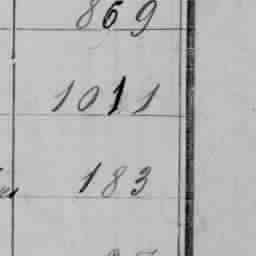 869
1011
183